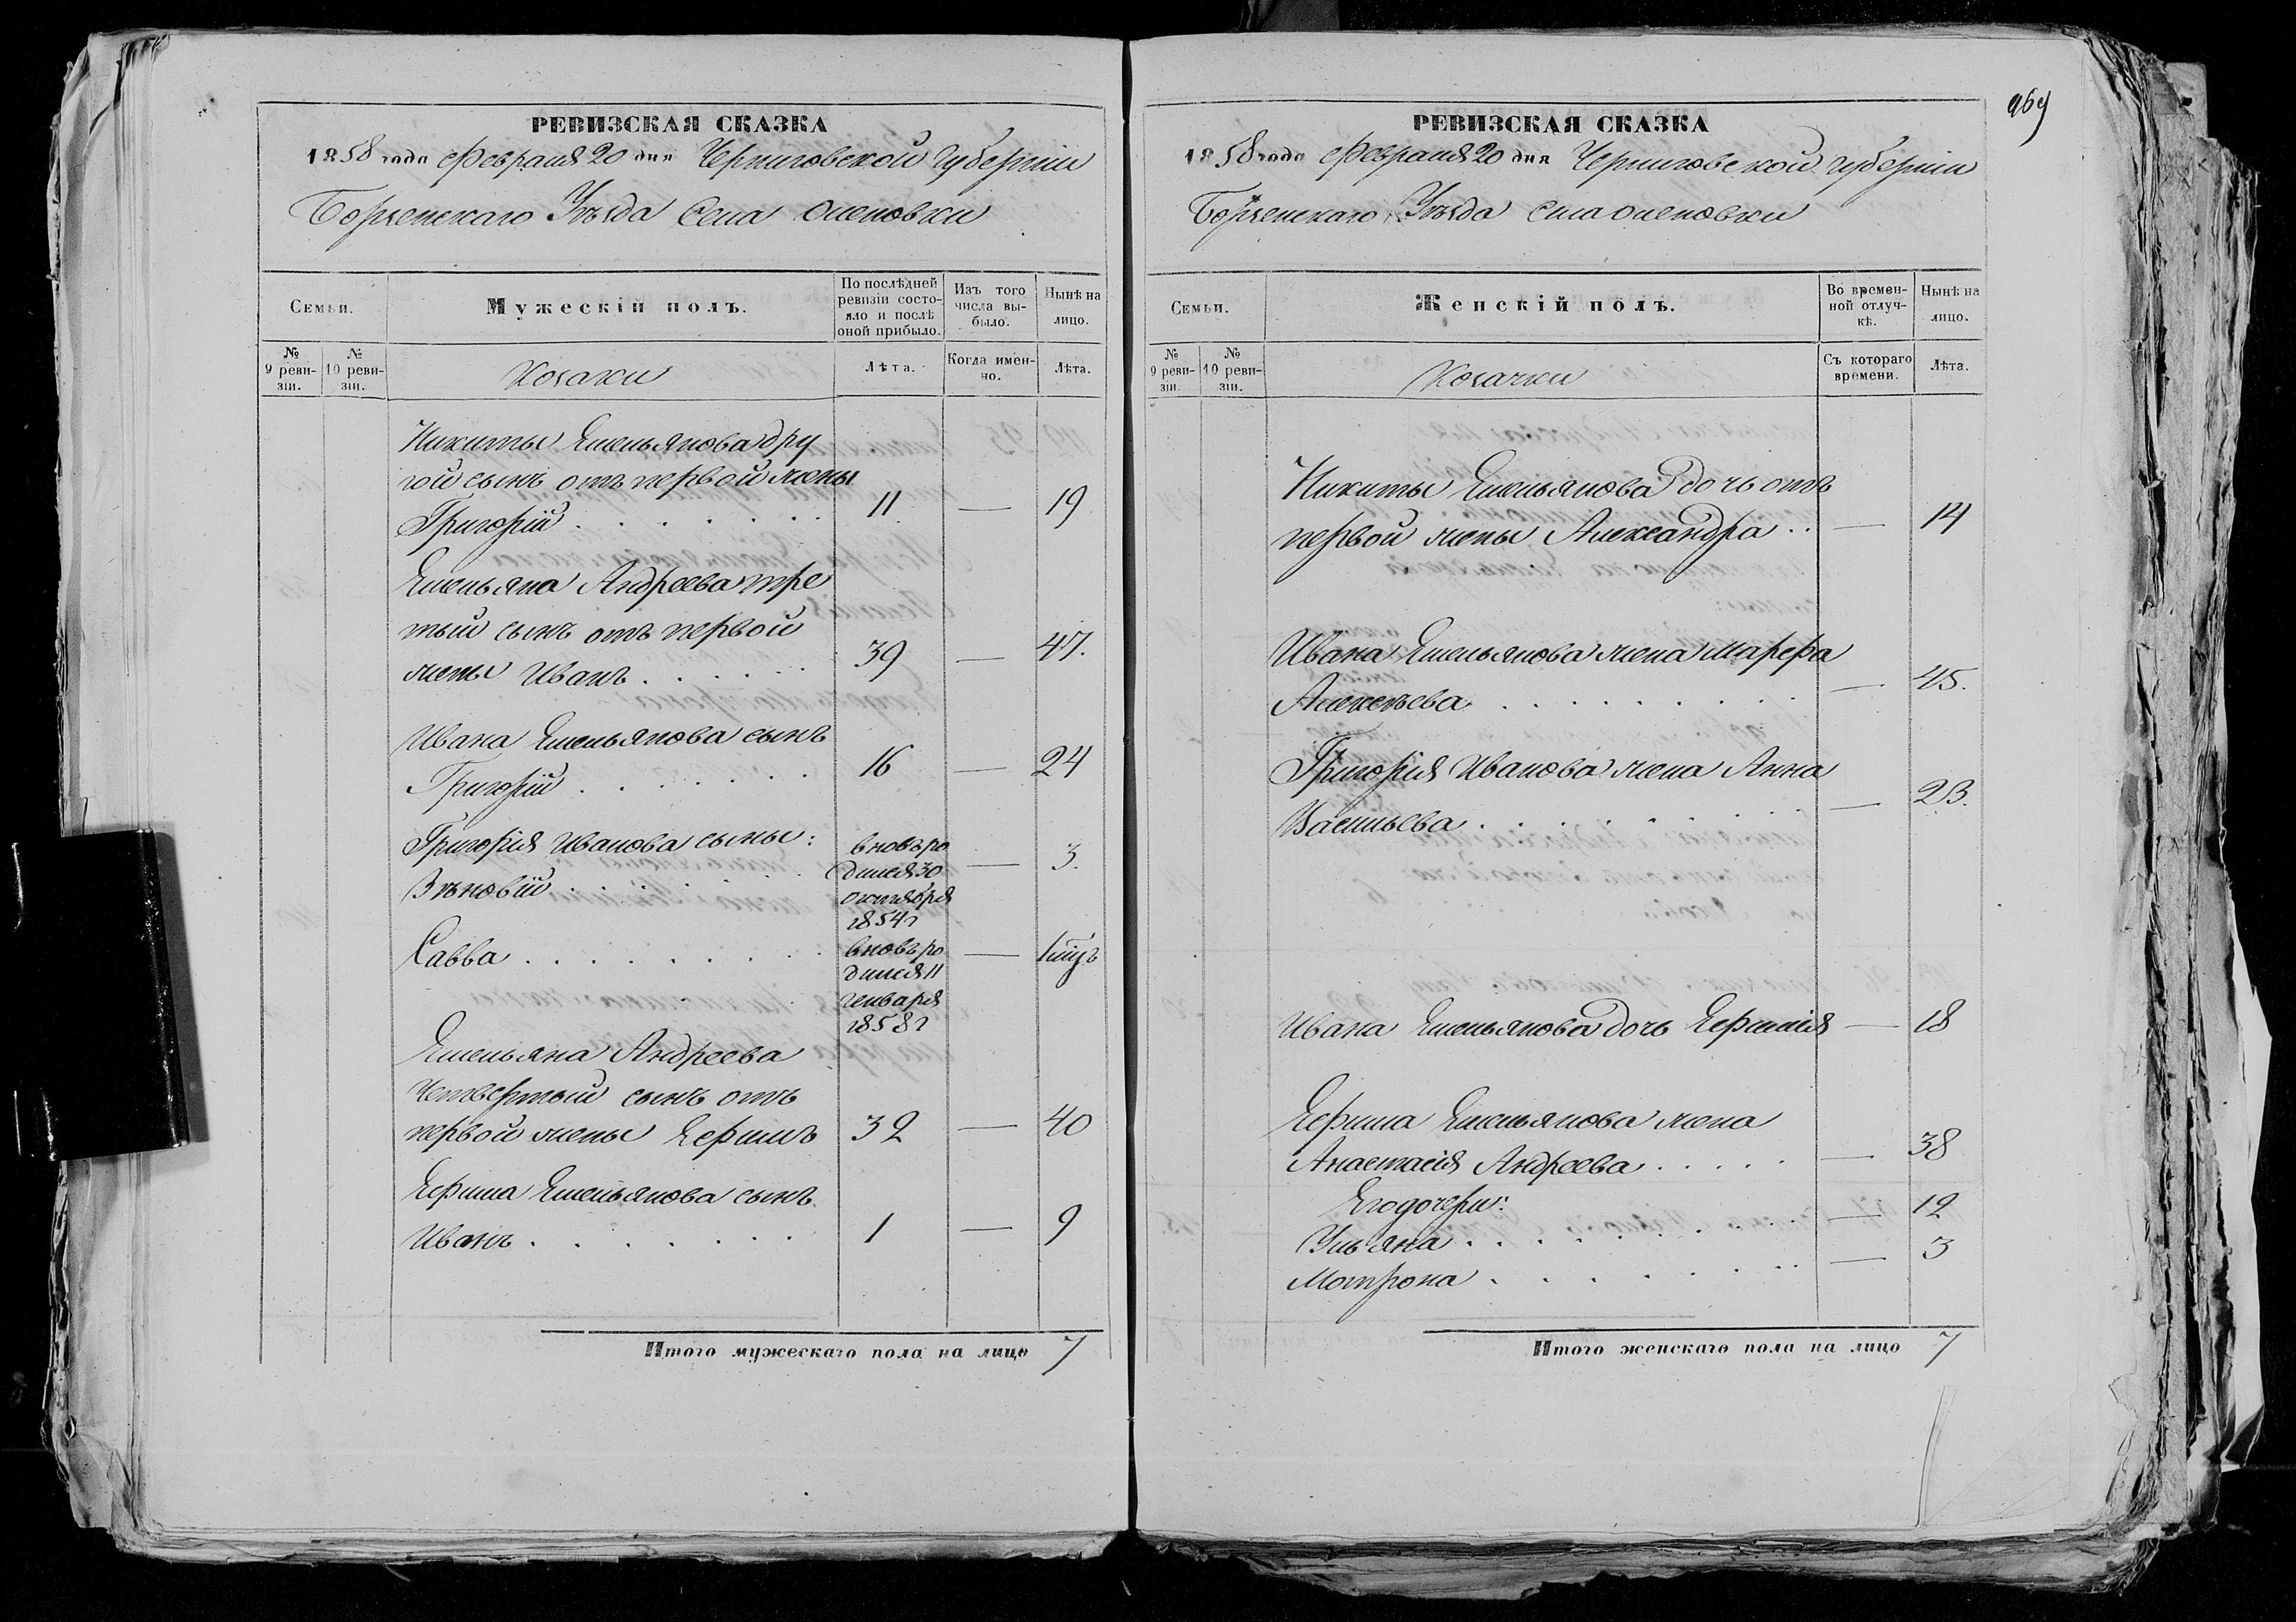 РЕВИЗСКАЯ СКАЗКА
1858 года Февраля 20 дня Черниговской Губерніи
Борзенскаго Уѣзда Села Оленовки
Семьи.
Мужескій полъ.
По послѣдней ревизіи состояло и послѣ оной прибыло.
Изъ того числа выбыло.
Нынѣ на лицо.
№ 9 ревизіи.
№ 10 ревизіи.
Козаки
Лѣта.
Когда именно.
Лѣта.
Никиты Емельянова дру
гой сынъ отъ первой жены
Григорій . . . . . . . 11 — 19
Емельяна Андреева тре
тый сынъ отъ первой
жены Иванъ . . . . . . 39 — 47.
Ивана Емельянова сынъ
Григорій . . . . . . 16 — 24
Григорія Иванова сыны:
Зѣновій . . . . . . вновь ро
дился 30
октября
1854 г — 3.
Савва . . . . . . . . . вновь ро
дился 11
генваря
1858 г — 1 мѣц
Емельяна Андреева
четвертый сынъ отъ
первой жены Ефимъ 32 — 40
Ефима Емельянова сынъ
Иванъ . . . . . . . 1 — 9
Итого мужескаго пола на лицо 7
969
РЕВИЗСКАЯ СКАЗКА
1858 года Февраля 20 дня Черниговской Губерніи
Борзенскаго Уѣзда Села Оленовки
Семьи.
Женскій полъ.
Во временной отлучкѣ.
Нынѣ на лицо.
№ 9 ревизіи.
№ 10 ревизіи.
Козачки
Съ котораго времени.
Лѣта.
Никиты Емельянова дочь отъ
первой жены Александра . . — 14
Ивана Емельянова жена Марфа
Алексѣева . . . . . . . . . — 45.
Григорія Иванова жена Анна
Васильева . . . . . . . . — 23.
Ивана Емельянова дочь Ефимія — 18
Ефима Емельянова жена
Анастасія Андреева . . . . . — 38
Его дочери:
Ульяна . . . . . . . . . — 12
Мотрона . . . . . . . . — 3
Итого женскаго пола на лицо 7